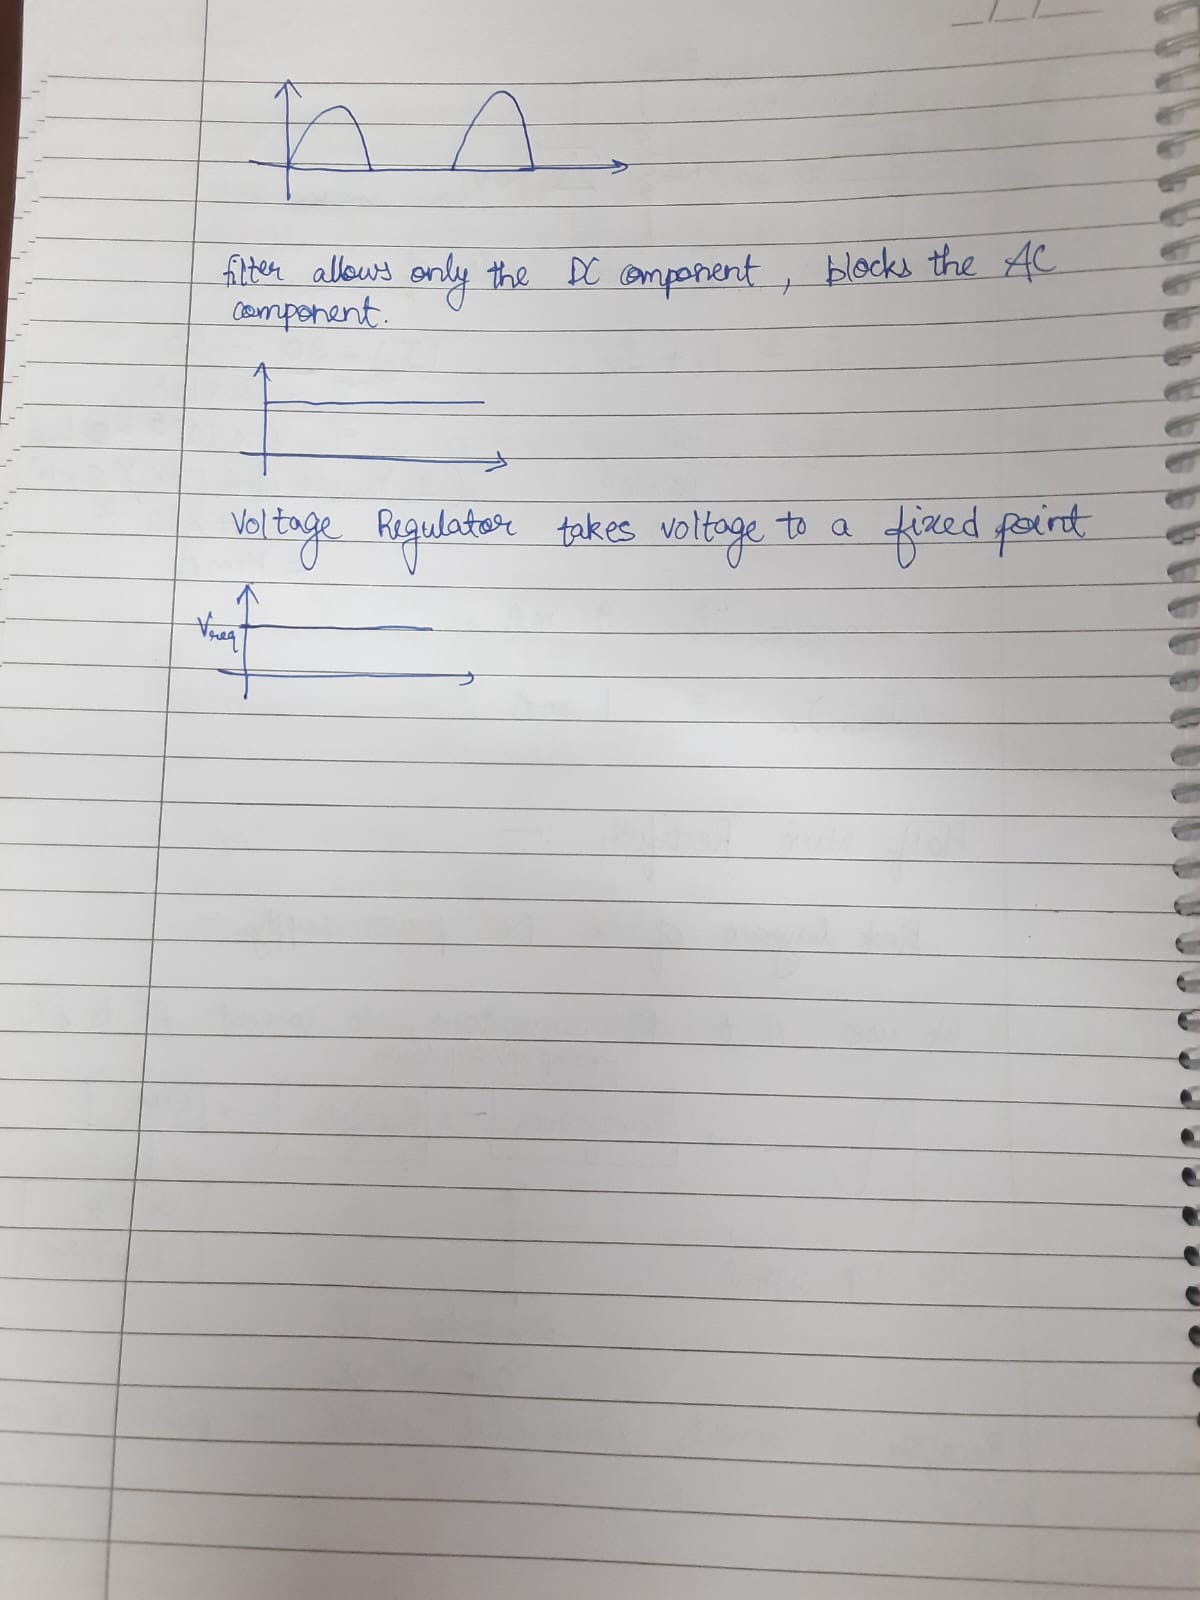 filter allows only the DC component, blocks the AC
component.
Voltage Regulator takes voltage to a fixed point
Vreq